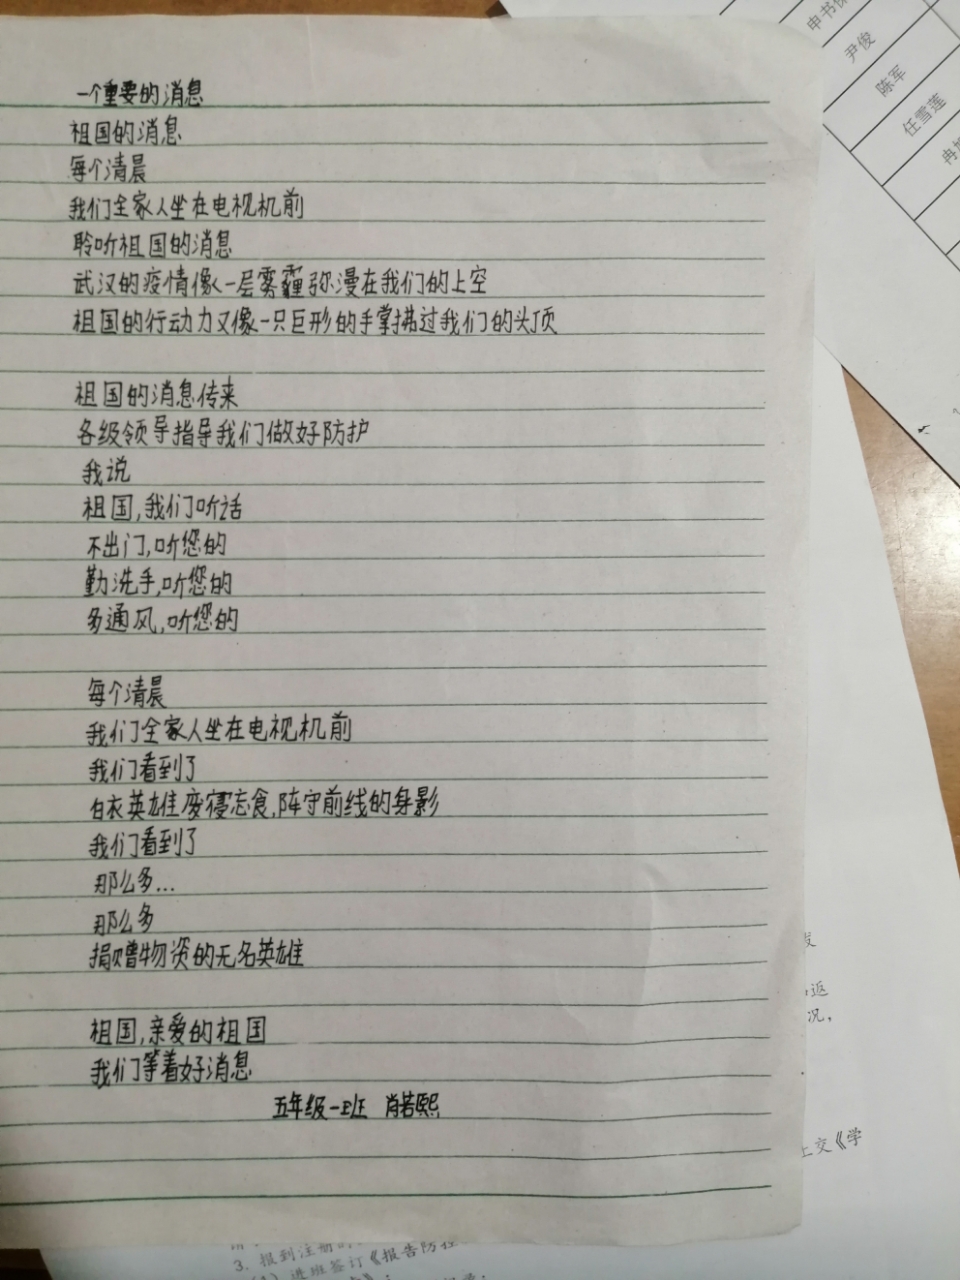 一个重要的消息
祖国的消息
每个清晨
我们全家人坐在电视机前
聆听祖国的消息
武汉的疫情像一层雾霾弥漫在我们的上空
祖国的行动力又像一只巨形的手掌拂过我们的头顶
祖国的消息传来
各级领导指导我们做好防护
我说
祖国,我们听话
不出门,听您的
勤洗手,听您的
多通风,听您的
每个清晨
我们全家人坐在电视机前
我们看到了
白衣英雄废寝忘食,阵守前线的身影
我们看到了
那么多...
那么多
捐赠物资的无名英雄
祖国,亲爱的祖国
我们等着好消息
五年级一班 肖若熙
申书
尹俊
陈军
任雪莲
冉
返
况,
上交《学
3. 报到注册时
进班签订《报告防控